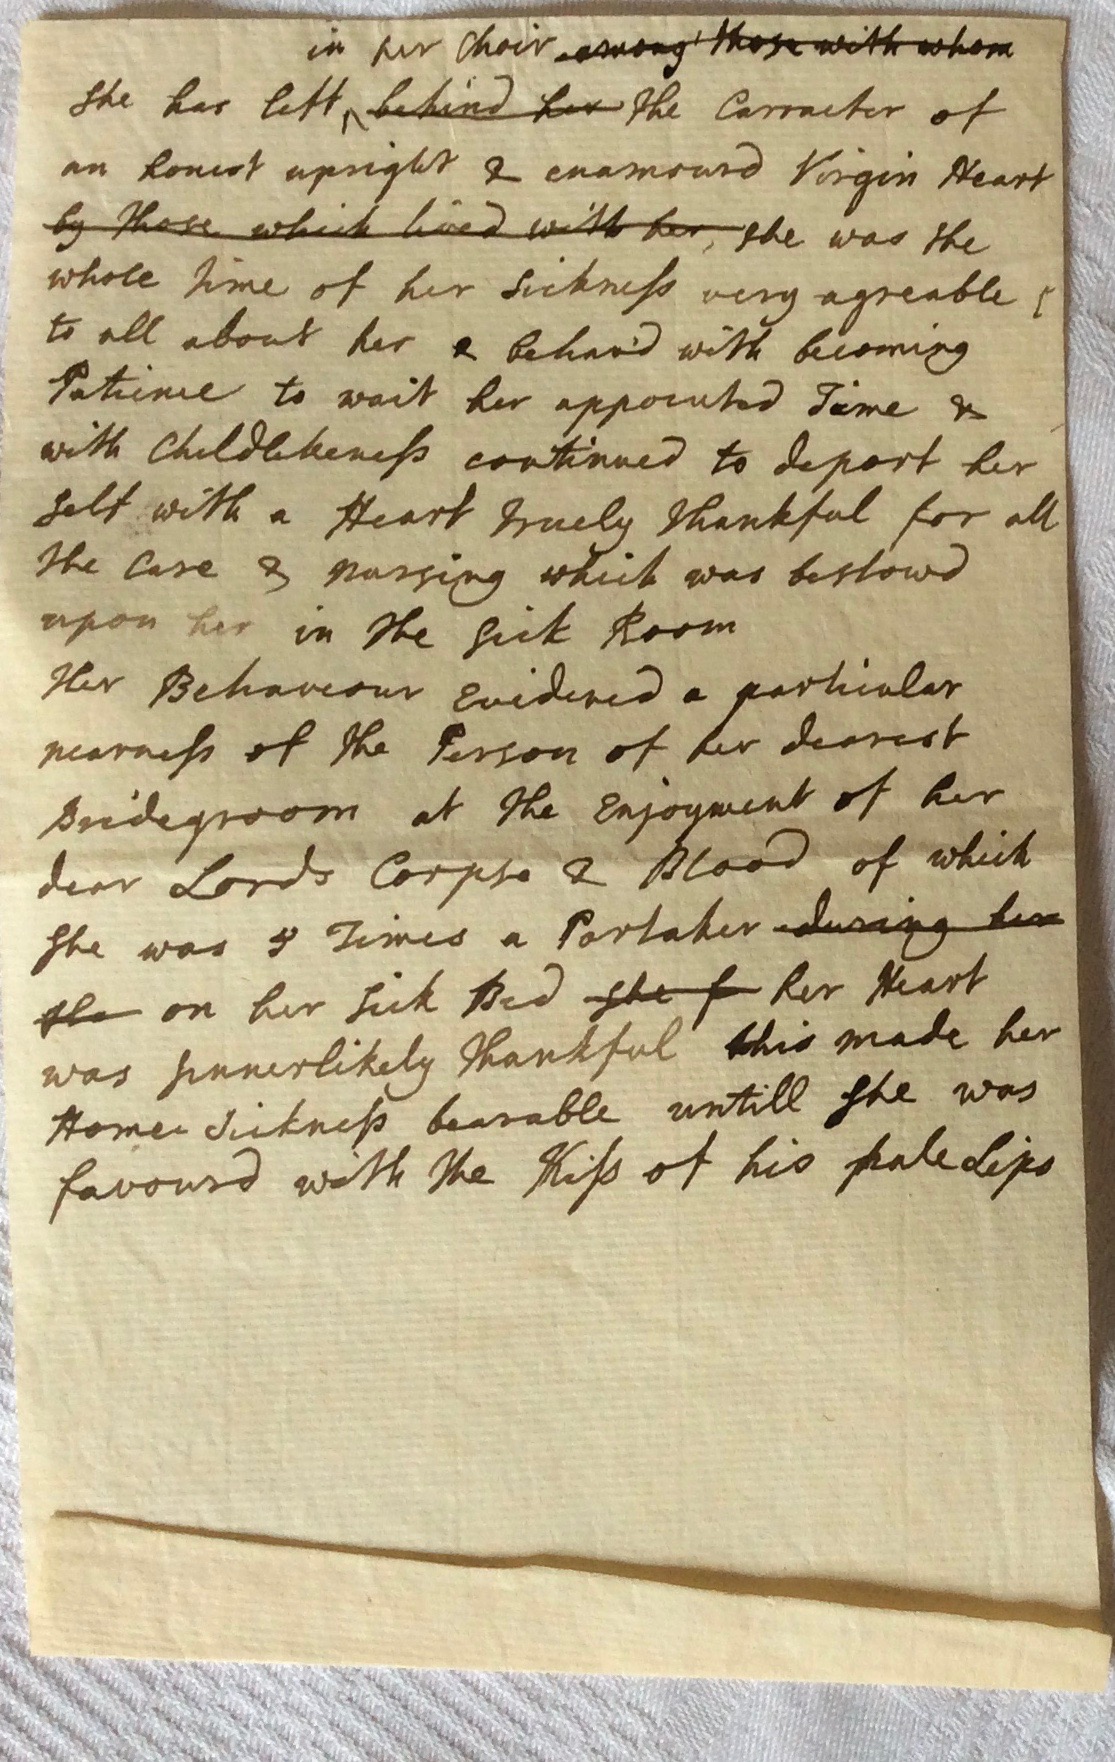 in her Choir among those with whom
She has left behind her the Carracter of
an honest upright & enamourd Virgin Heart
by those which lived with her, she was the
whole time of her Sickness very agreable
to all about her & behav'd with becoming
Patience to wait her appointed Time &
with Childlikeness continued to deport her
self with a Heart truely thankful for all
the Care & nursing which was bestowd
upon her in the Sick Room
Her Behaviour Evidenced a particular
nearness of the Person of her dearest
Bridegroom at the Enjoyment of her
dear Lords Corpse & Blood of which
She was 5 Times a Partaker during her
she on her Sick Bed she f her Heart
was sinnerlikely thankful this made her
Home Sickness bearable untill she was
favourd with the Kiss of his pale Lips